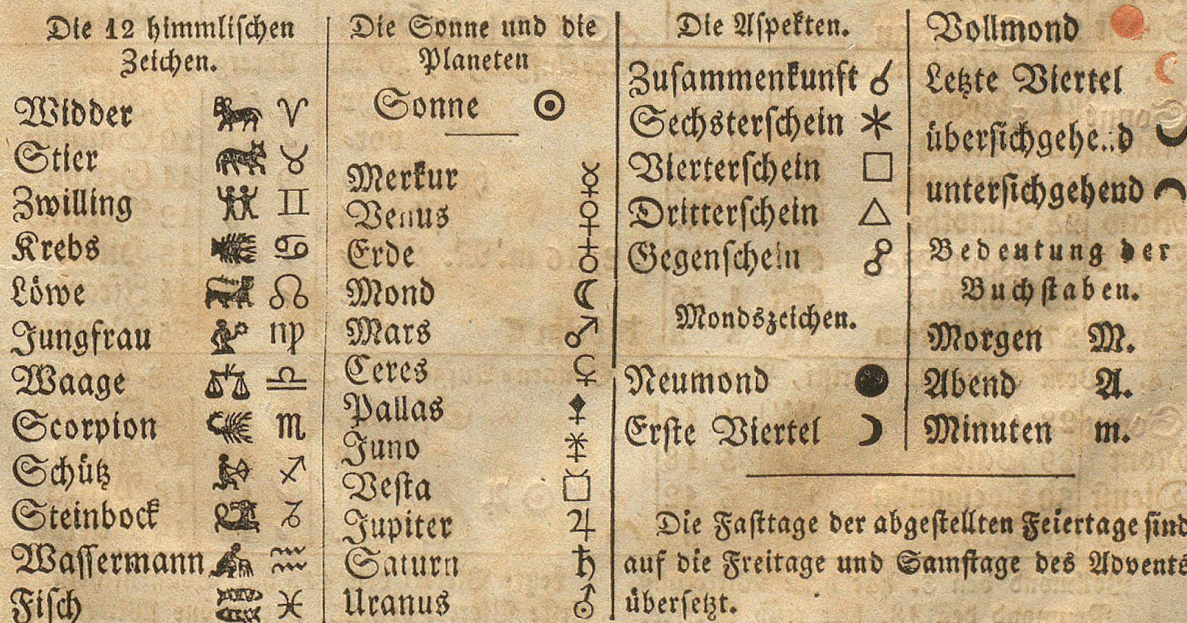 Die 12 himmlischen
Zeichen.
Widder ♈
Stier ♉
Zwilling ♊
Krebs ♋
Löwe ♌
Jungfrau ♍
Waage ♎
Scorpion ♏
Schütz ♐
Steinbock ♑
Wassermann ♒
Fisch ♓
Die Sonne und die
Planeten
Sonne ☉
Merkur ☿
Venus ♀
Erde ♁
Mond ☾
Mars ♂
Ceres ⚳
Pallas ⚴
Juno ⚵
Vesta ⚶
Jupiter ♃
Saturn ♄
Uranus ⛢
Die Aspekten.
Zusammenkunft ☌
Sechsterschein ⚹
Vierterschein □
Dritterschein △
Gegenschein ☍
Mondszeichen.
Neumond ●
Erste Viertel ☽
Vollmond
Letzte Viertel ☾
übersichgehe..d
untersichgehend
Bedeutung der
Buchstaben.
Morgen M.
Abend A.
Minuten m.
Die Fasttage der abgestellten Feiertage sind
auf die Freitage und Samstage des Advents
übersetzt.